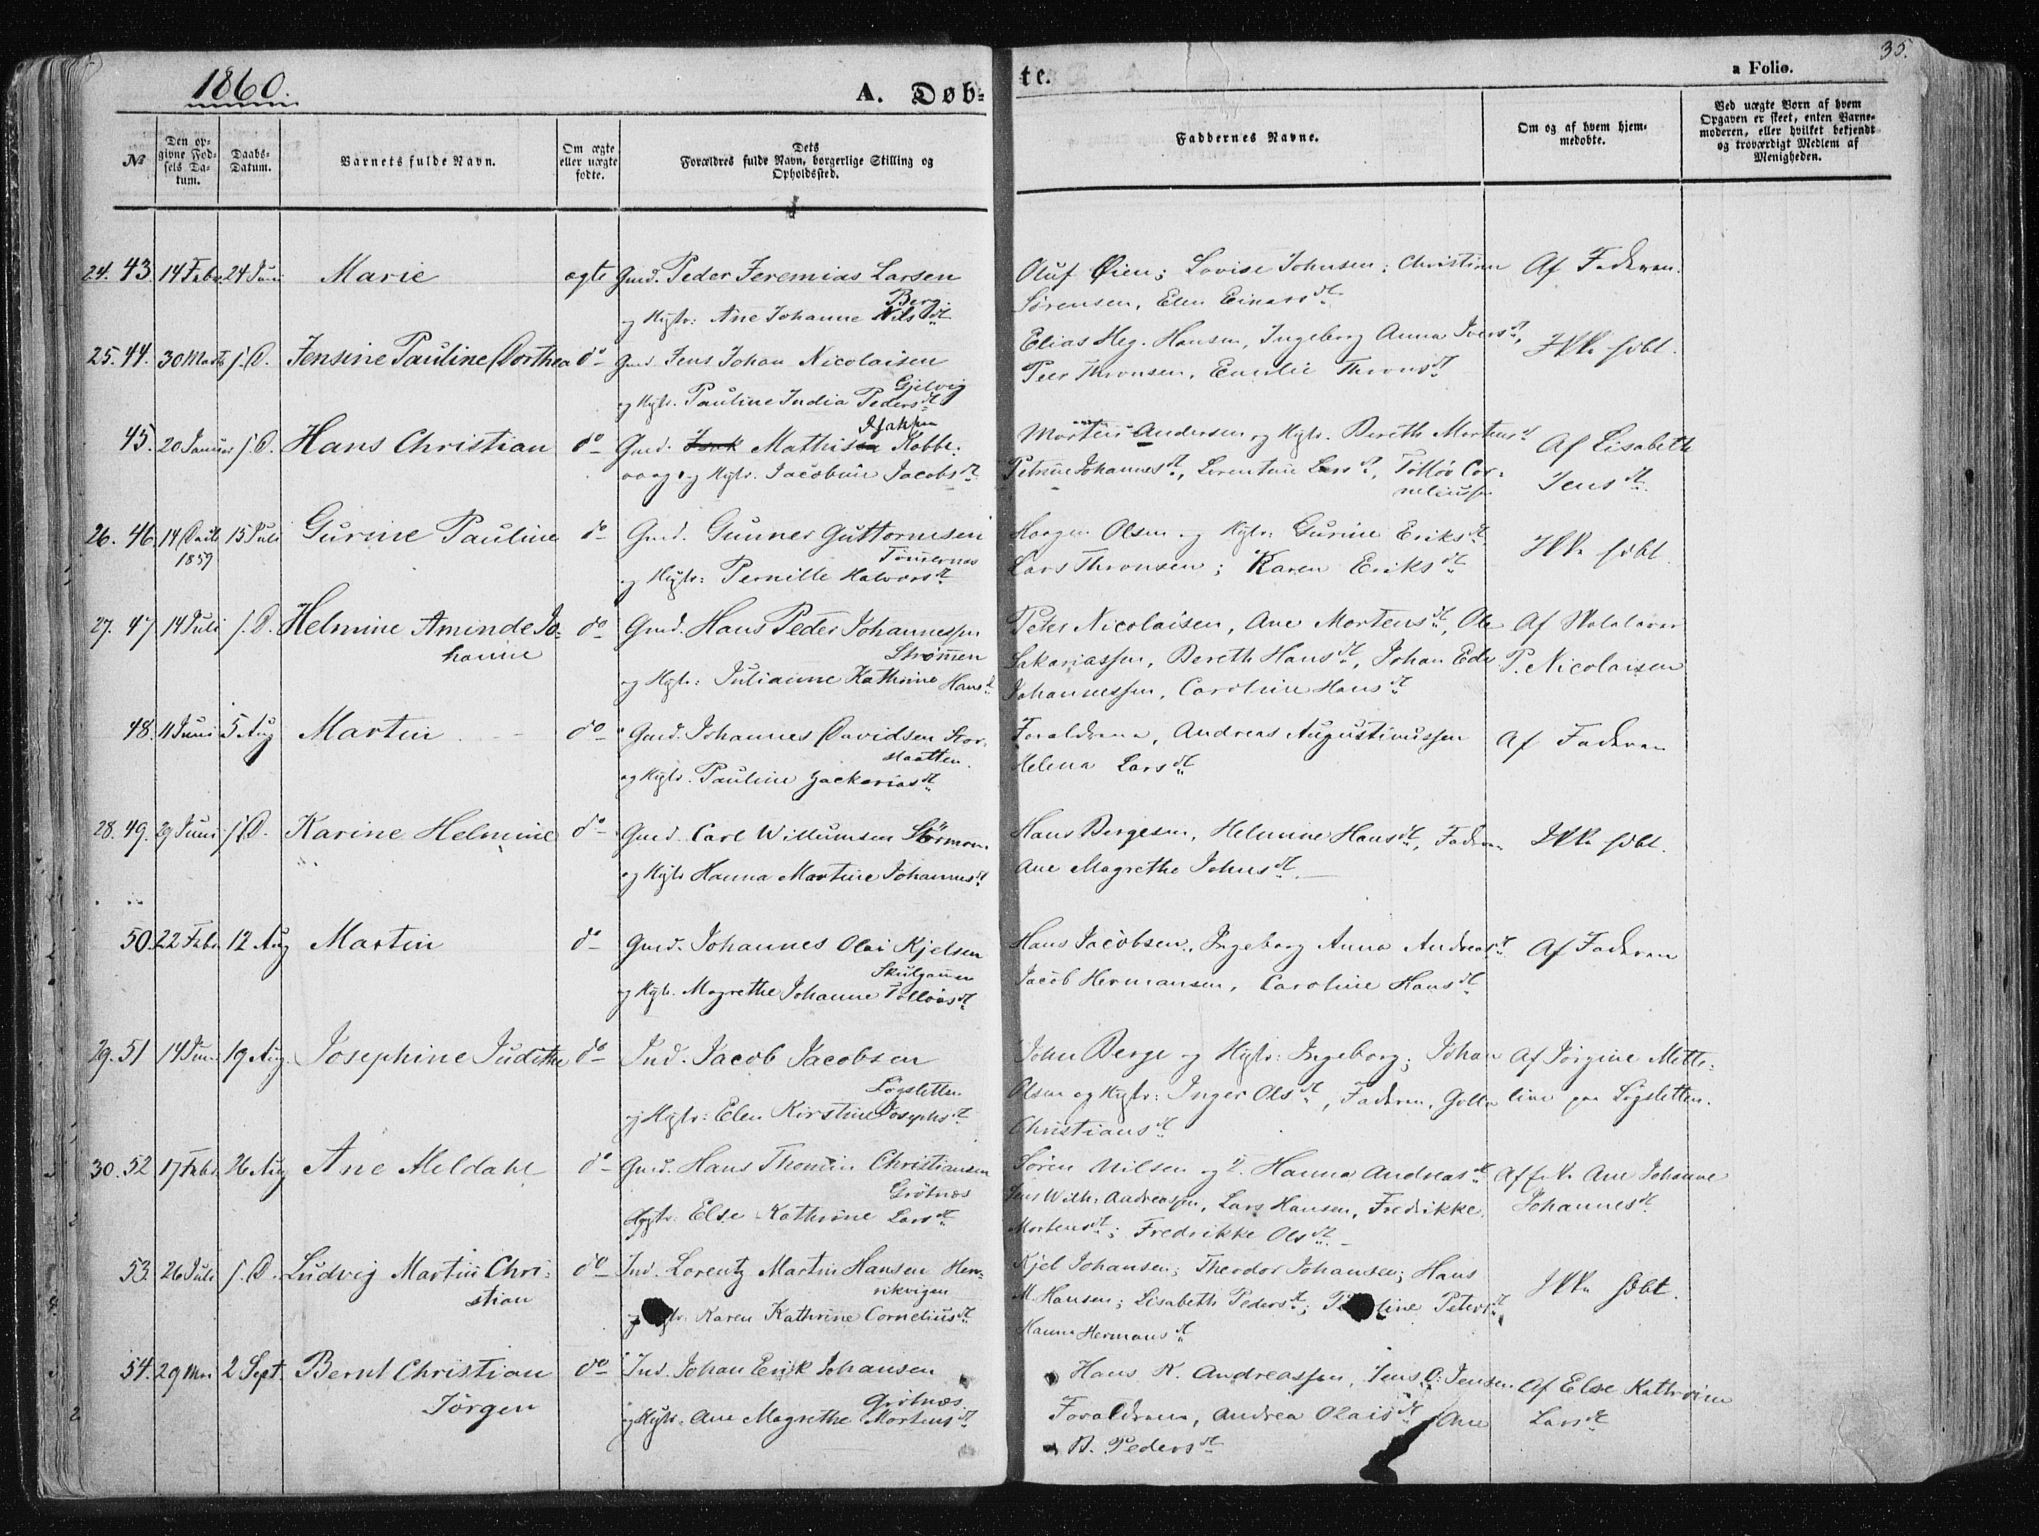 1860.
A. Døb-
te.
a Folio.
35.
№
Den op-
givne Fød-
sels Da-
tum.
Daabs-
Datum.
Barnets fulde Navn.
Om ægte
eller uægte
fødte.
Dets
Forældres fulde Navn, borgerlige Stilling og
Opholdssted.
Faddernes Navne.
Om og af hvem hjem-
medøbte.
Ved uægte Børn af hvem
Opgaven er skeet, enten Barne-
moderen, eller hvilket bekjendt
og troværdigt Medlem af
Menigheden.
24. 43. 14 Febr 24 Juni Marie ægte Gmd. Peder Jeremias Larsen
Berg.
og Hustr: Ane Johanne Nilsdt
Oluf Øien; Lovise Johnsen; Christian
Sørensen, Elen Einarsdt
Af Faderen.
25. 44. 30 Marts s. D. Jensine Pauline Dorthea do Gmd. Jens Johan Nicolaisen
Gjelvig
og Hustr. Pauline India Pedersdt
Elias Heg. Hansen, Ingeborg Anna Iversdt,
Peer Thronsen, Emilie Thronsdt
Ikke høbt.
45. 20 Januar s. D. Hans Christian do Gmd. Mathis Kobbe-
vaag og Hustr. Jacobine Jacobsdt
Morten Andersen og Hustr. Bereth Mortensdt
Petrine Johannesdt, Lorentine Larsdt, Tolløv Cor-
neliussen
Af Lisabeth
Jensdt
26. 46. 14 1859 15 Juli Gurine Pauline do Gmd. Gunner Guttormsen
Tømmernes
og Hustr: Pernille Halvorsdt
Haagen Olsen og Hustr: Gurine Eriksdt
Lars Thronsen; Karen Eriksdt
27. 47 14 Juli s. D. Helmine Aminde Jo-
hanne
do Gmd. Hans Peder Johannessen
Strømmen
og Hustr: Julianne Kathrine Hansdt
Peter Nicolaisen, Ane Mortensdt, Ole
Sakariassen, Bereth Hansdt, Johan Edv
Johannessen, Caroline Hansdt
Af Skolelærer
P. Nicolaisen
48. 11 Juni 5 Aug Martin do Gmd. Johannes Davidsen Stor-
slaatten.
og Hustr. Pauline Zackariasdt
Forældrene, Andreas Augustinussen
Helena Larsdt
Af Faderen
28. 49. 29 Juni s. D. Karine Helmine do Gmd. Carl Willumsen Størmoen.
og Hustr Hanna Martine Johannesdt
Hans Bergesen, Helmine Hansdt, Faderen
Ane Magrethe Johnsdt
50. 22 Febr 12 Aug Martin do Gmd. Johannes Olai Kjelsen
Skulgammen
og Hustr. Magrethe Johanne Tolløvsdt
Hans Jacobsen, Ingeborg Anna Andreasdt
Jacob Hermansen, Caroline Hansdt
Af Faderen
29. 51 14 Juni 19 Aug. Josephine Judithe do Ind. Jacob Jacobsen
Løgsletten
og Hustr: Elen Kirstine Josephsdt
John Berge og Hustr: Ingeborg; Johan
Olsen og Hustr: Inger Olsdt, Faderen,
Christiansdt
Af Jørgine Mette-
line paa Løgsletten.
30. 52 17 Febr 26 Aug Ane Meldahl do Gmd. Hans Thomin Christiansen
Grøtnæs
Hustr: Else Kathrine Larsdt
Søren Nilsen og H. Hanna Andreasdt
Jens Wilh: Andreassen, Lars Hansen, Fredrikke
Mortensdt; Fredrikke Olsdt
Ane Johanne
Johannesdt
53. 26 Juli s. D. Ludvig Martin Chri-
stian
do Ind. Lorentz Martin Hansen Hen-
rikvigen
Karen Kathrine Corneliusdt
Kjel Johansen; Theodor Johansen; Hans
M. Hansen; Lisabeth Pedersdt; Petersdt
Hanna Hermansdt
54. 29 Mai 2 Sept. Bernt Christian
Jørgen
do Ind. Johan Erik Johansen
Grøtnæs
og Hustr: Ane Magrethe Mortensdt
Hans K. Andreassen, Jens C. Jensen
Forældrene, Andrea Olaisdt Ane
B. Pedersdt
Af Else Kathrine
Larsdt